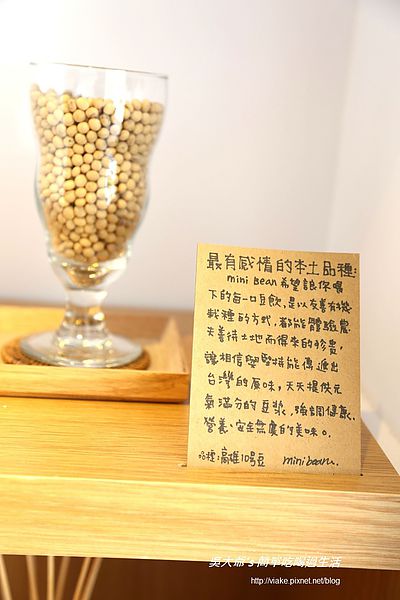 最有感情的本土品種:
mini Bean希望讓你喝
下的每一口豆飲,是以友善有機
栽種的方式,都能體驗農
夫善待土地而得來的珍貴,
讓相信與堅持能傳遞出
台灣的原味,天天提供元
氣滿分的豆漿,強調健康、
營養、安全無虞的美味。
品種:高雄10號豆 mini bean.
吳大爺's 簡單吃喝過生活
http://viake.pixnet.net/blog